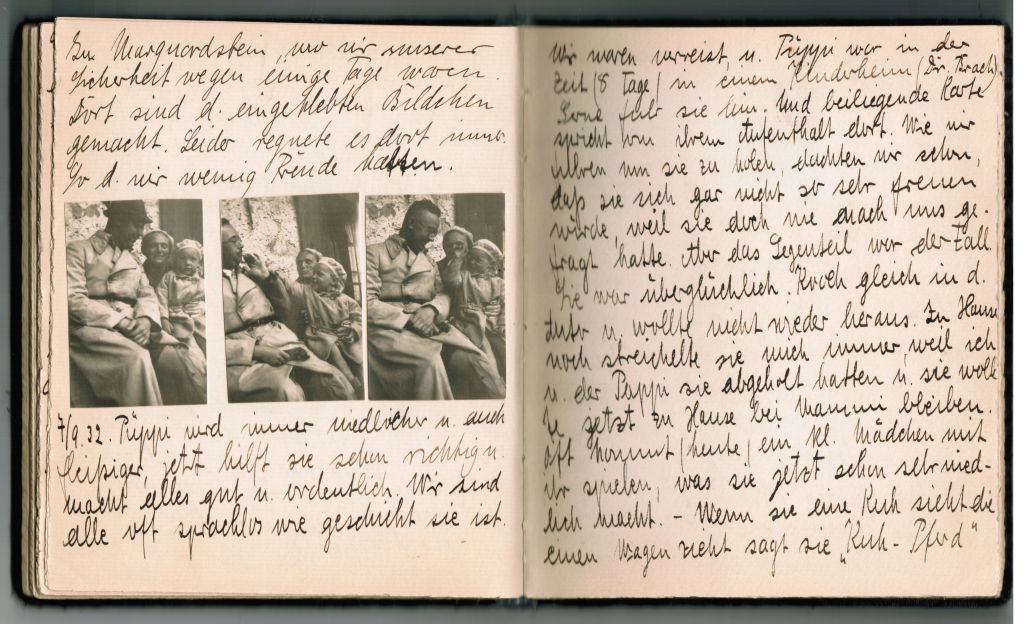 In Marquardstein, wo wir unserer
Sicherheit wegen einige Tage waren.
Dort sind d. eingeklebten Bildchen
gemacht. Leider regnete es dort immer.
So d. wir wenig Freude hatten.
7/9.32. Püppi wird immer niedlicher u. auch
fleißiger, jetzt hilft sie schon richtig u.
macht alles gut u. ordentlich. Wir sind
alle oft sprachlos wie geschickt sie ist.
Wir waren verreist, u. Püppi war in der
Zeit (8 Tage) in einem Kinderheim (Dr. Brach).
Gerne fuhr sie hin. Und beiliegende Karte
spricht von ihrem Aufenthalt dort. Wie wir
fuhren um sie zu holen, dachten wir schon,
daß sie sich gar nicht so sehr freuen
würde, weil sie doch nie nach uns ge-
fragt hatte. Aber das Gegenteil war der Fall.
Sie war überglücklich. Kroch gleich in d.
Auto u. wollte nicht wieder heraus. Zu Hause
noch streichelte sie mich immer, weil ich
u. der Pappi sie abgeholt hatten u. sie woll
te jetzt zu Hause bei Mammi bleiben.
Oft kommt (heute) ein kl. Mädchen mit
ihr spielen, was sie jetzt schon sehr nied-
lich macht. - Wenn sie eine Kuh sieht die
einen Wagen zieht sagt sie „Kuh - Pferd"